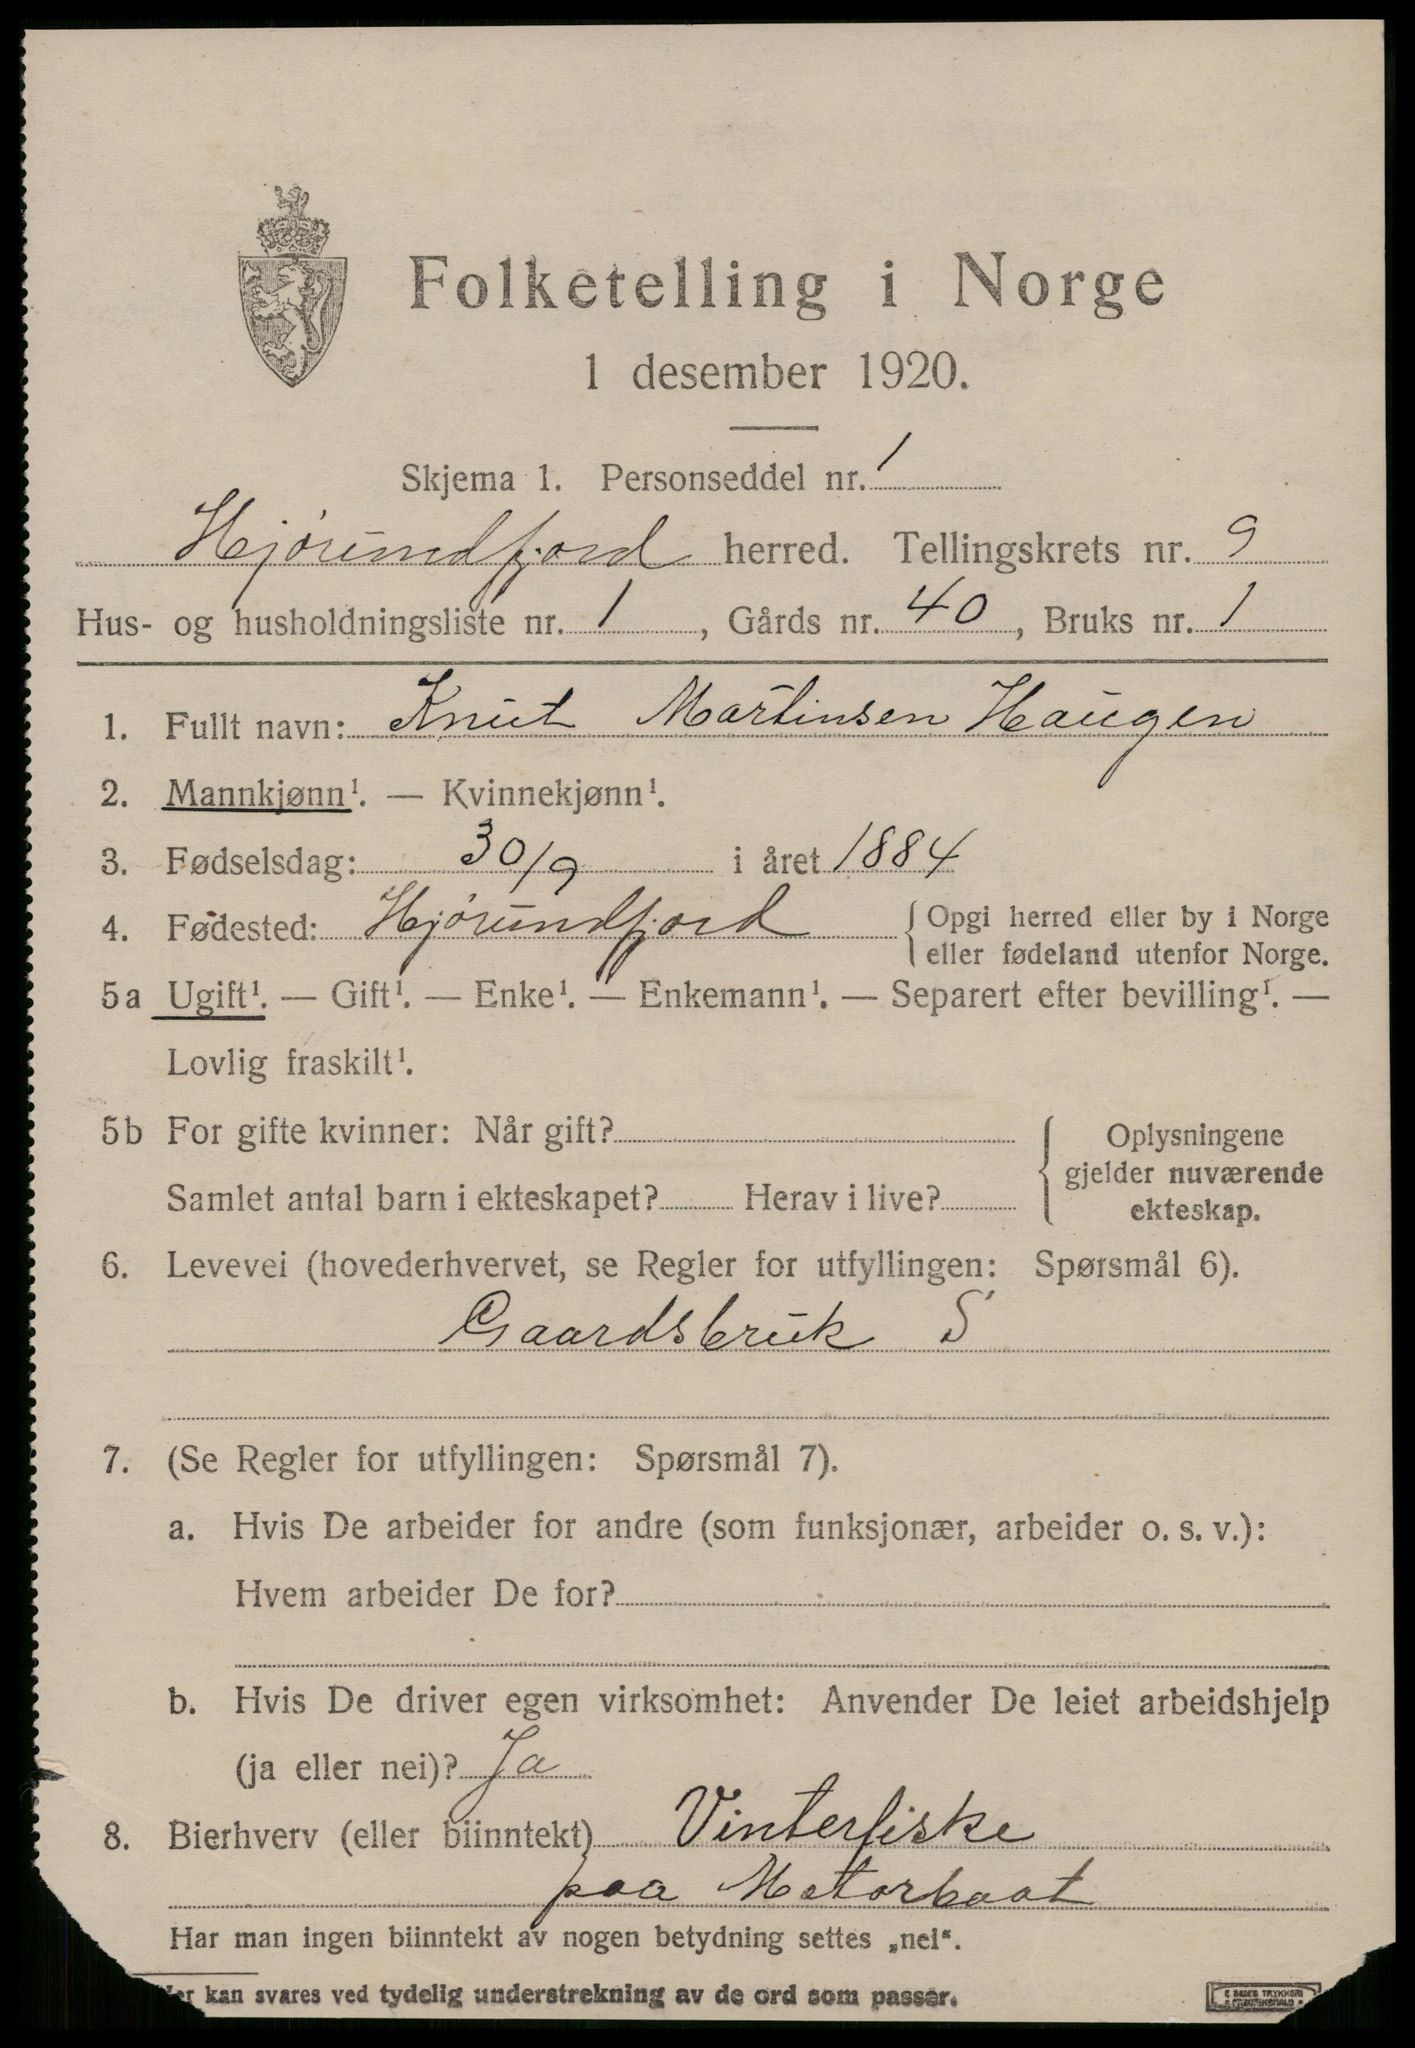 Folketelling i Norge
1 desember 1920.
Skjema 1. Personseddel nr. 1
Hjørundfjord herred. Tellingskrets nr. 9
Hus- og husholdningsliste nr. 1, Gårds nr. 40, Bruks nr. 1
1. Fullt navn: Knut Martinsen Haugen
2. Mannkjønn¹. — Kvinnekjønn¹.
3. Fødselsdag: 30/9 i året 1884
4. Fødested: Hjørundfjord { Opgi herred eller by i Norge
eller fødeland utenfor Norge.
5a Ugift¹. — Gift¹. — Enke¹. — Enkemann¹. — Separert efter bevilling¹. —
Lovlig fraskilt¹.
5b For gifte kvinner: Når gift?
Samlet antal barn i ekteskapet? Herav i live?
{ Oplysningene
gjelder nuværende
ekteskap.
6. Levevei (hovederhvervet, se Regler for utfyllingen: Spørsmål 6).
Gaardsbruk S
7. (Se Regler for utfyllingen: Spørsmål 7).
a. Hvis De arbeider for andre (som funksjonær, arbeider o. s. v.):
Hvem arbeider De for?
b. Hvis De driver egen virksomhet: Anvender De leiet arbeidshjelp
(ja eller nei)? Ja
8. Bierhverv (eller biinntekt) Vinterfiske
paa Motorbaat
Har man ingen biinntekt av nogen betydning settes „nei“.
kan svares ved tydelig understrekning av de ord som passer.